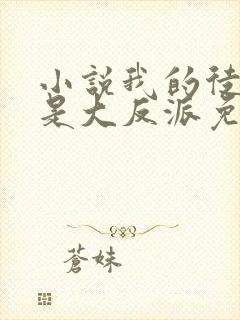 小說我的徒
是大反派免
蒼妹